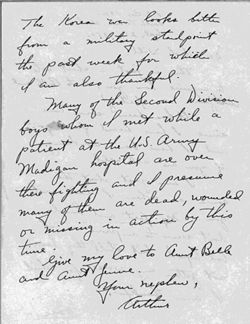 The Korea war looks better
from a military standpoint
the past week for which
I am also thankful.
Many of the Second Division
boys whom I met while a
patient at the U.S. Army
Madigan hospital are over
there fighting and I presume
many of them are dead, wounded
or missing in action by this
time.
Give my love to Aunt Belle
and Aunt Jennie.
Your nephew,
Arthur